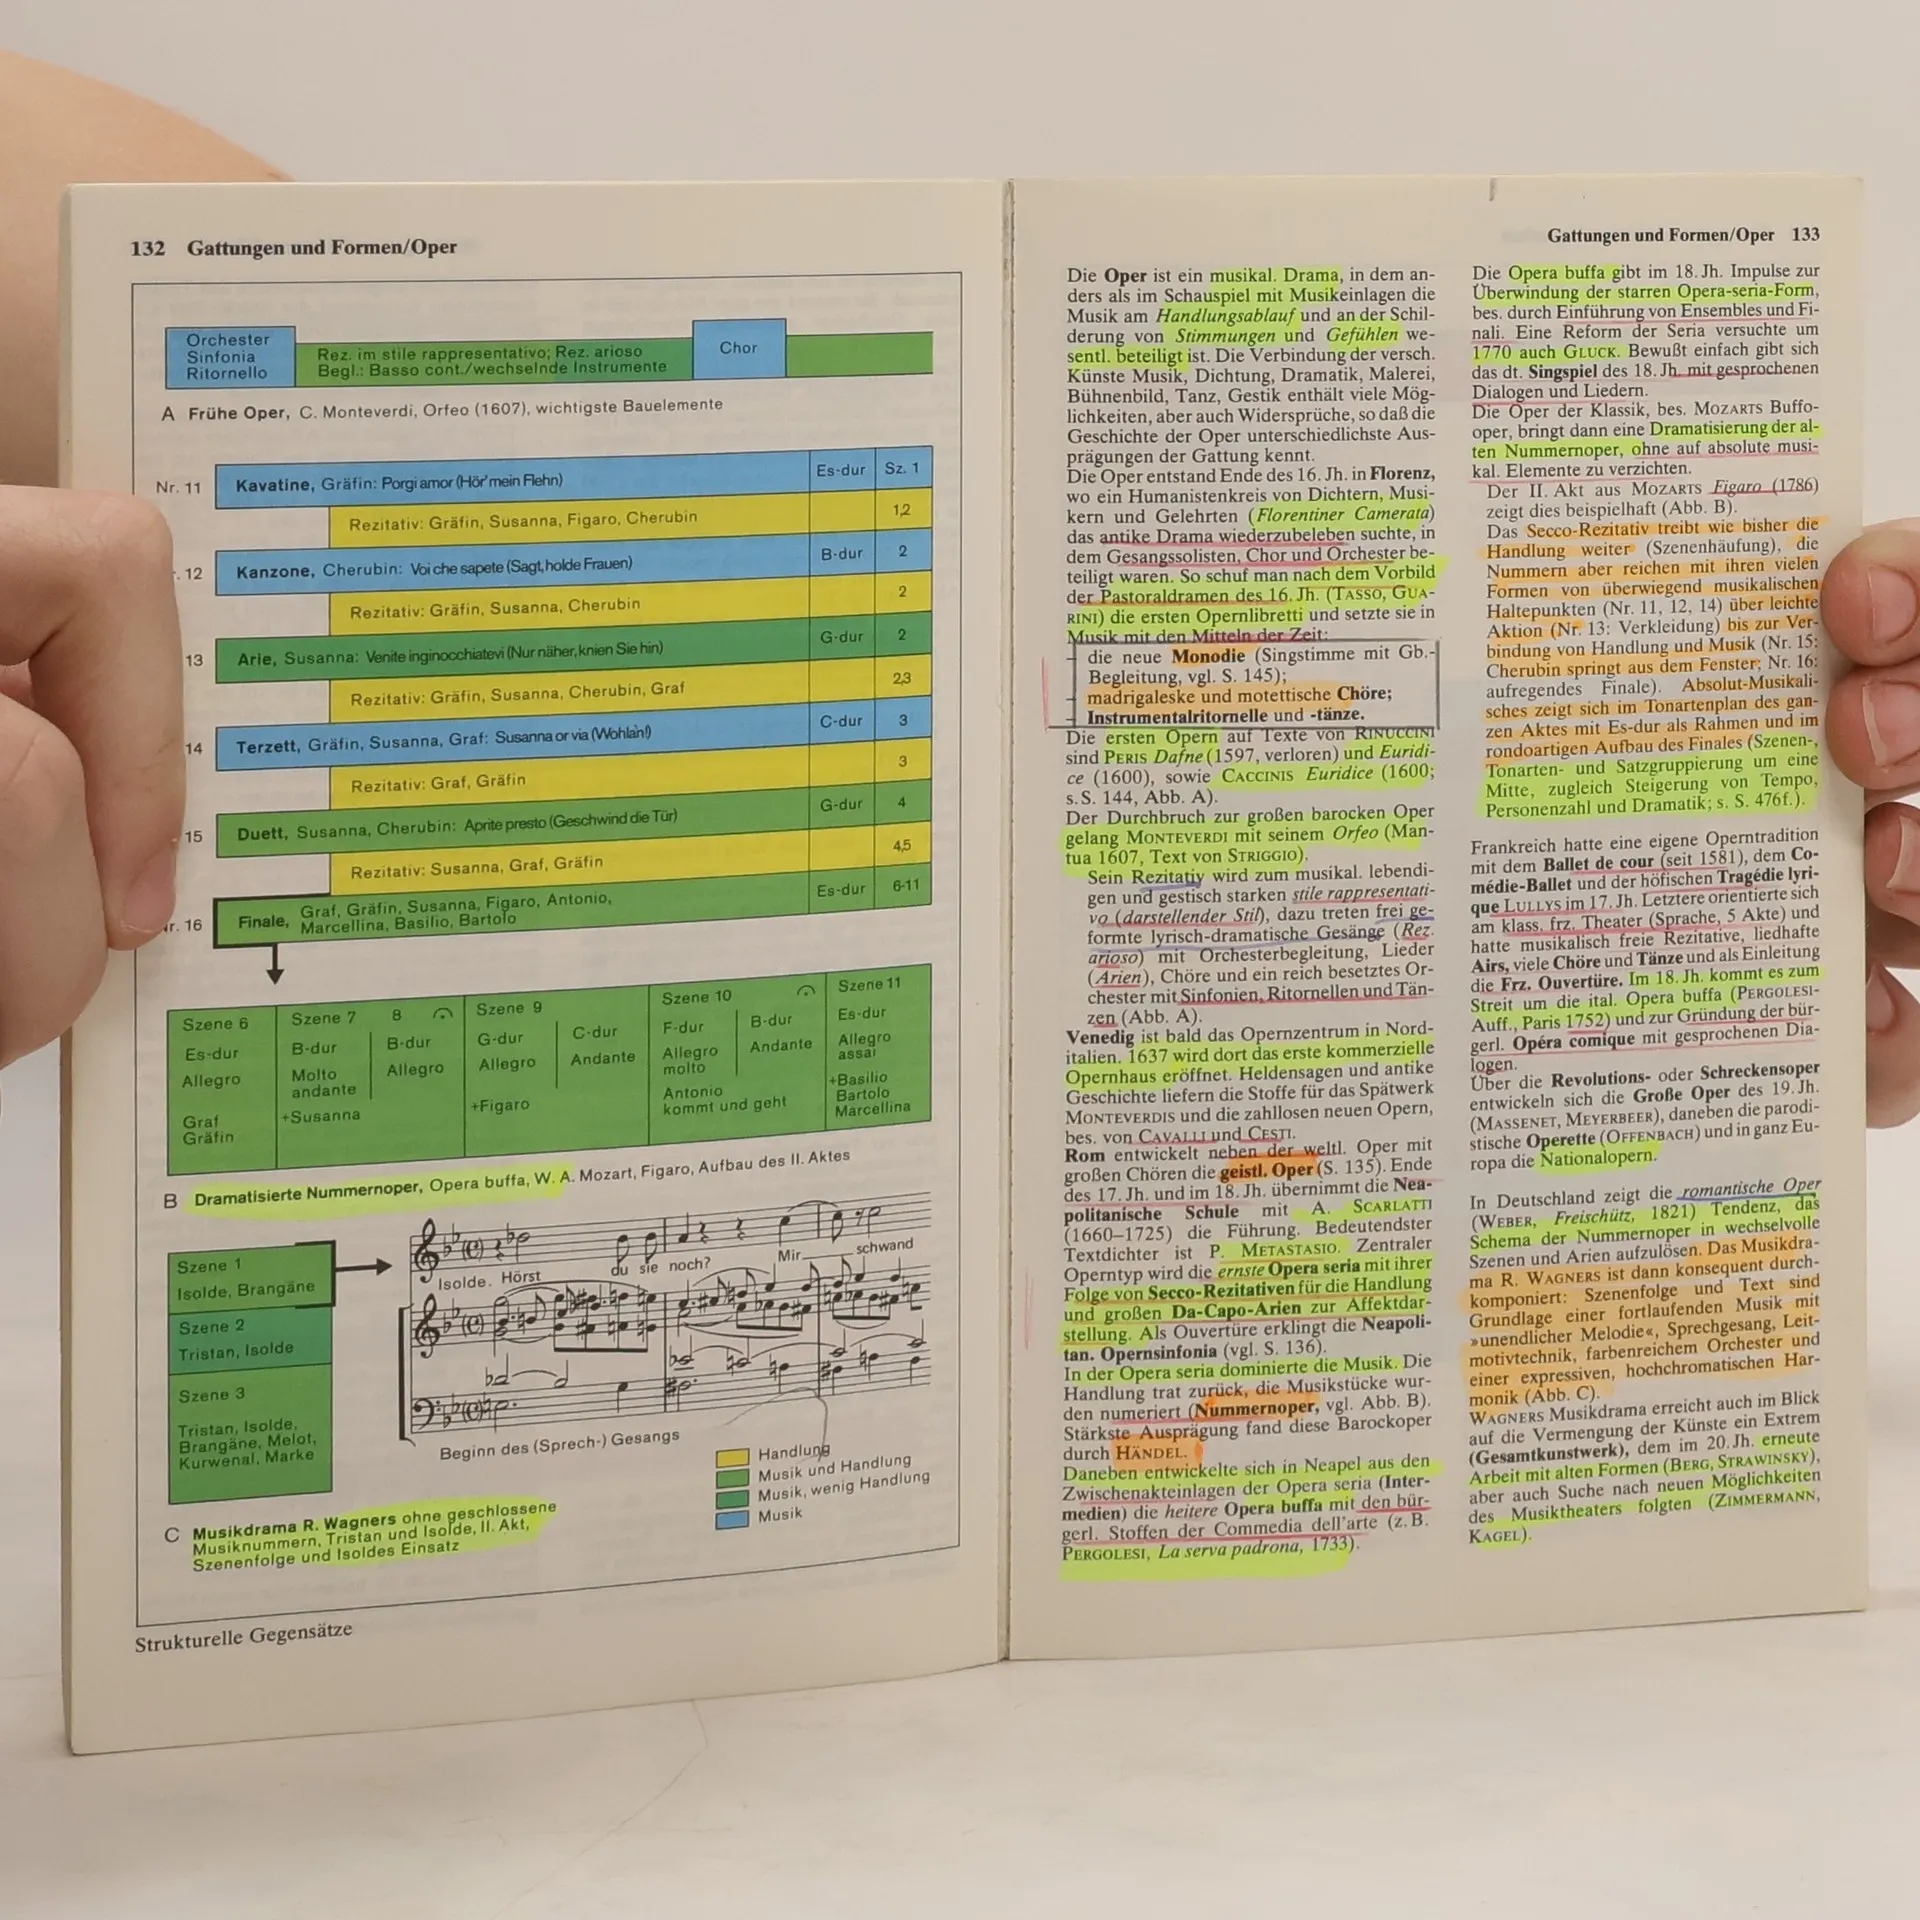 132 Gattungen und Formen/Oper
Orchester
Sinfonia
Ritornello
Rez. im stile rappresentativo; Rez. arioso
Begl.: Basso cont./wechselnde Instrumente
Chor
A Frühe Oper, C. Monteverdi, Orfeo (1607), wichtigste Bauelemente
Nr. 11 Kavatine, Gräfin: Porgi amor (Hör' mein Flehn) Es-dur Sz. 1
Rezitativ: Gräfin, Susanna, Figaro, Cherubin 1,2
r. 12 Kanzone, Cherubin: Voi che sapete (Sagt, holde Frauen) B-dur 2
Rezitativ: Gräfin, Susanna, Cherubin 2
13 Arie, Susanna: Venite inginocchiatevi (Nur näher, knien Sie hin) G-dur 2
Rezitativ: Gräfin, Susanna, Cherubin, Graf 2,3
14 Terzett, Gräfin, Susanna, Graf: Susanna or via (Wohlan!) C-dur 3
Rezitativ: Graf, Gräfin 3
15 Duett, Susanna, Cherubin: Aprite presto (Geschwind die Tür) G-dur 4
Rezitativ: Susanna, Graf, Gräfin 4,5
Nr. 16 Finale, Graf, Gräfin, Susanna, Figaro, Antonio, Es-dur 6-11
Marcellina, Basilio, Bartolo
Szene 6
Es-dur
Allegro
Graf
Gräfin
Szene 7 8
B-dur B-dur
Molto Allegro
andante
+Susanna
Szene 9
G-dur C-dur
Allegro Andante
+Figaro
Szene 10
F-dur B-dur
Allegro Andante
molto
Antonio
kommt und geht
Szene 11
Es-dur
Allegro
assai
+Basilio
Bartolo
Marcellina
B Dramatisierte Nummernoper, Opera buffa, W. A. Mozart, Figaro, Aufbau des II. Aktes
Szene 1
Isolde, Brangäne
Szene 2
Tristan, Isolde
Szene 3
Tristan, Isolde,
Brangäne, Melot,
Kurwenal, Marke
Isolde. Hörst du sie noch? Mir schwand
Beginn des (Sprech-) Gesangs
Handlung
Musik und Handlung
Musik, wenig Handlung
Musik
C Musikdrama R. Wagners ohne geschlossene
Musiknummern, Tristan und Isolde, II. Akt,
Szenenfolge und Isoldes Einsatz
Strukturelle Gegensätze
Gattungen und Formen/Oper 133
Die Oper ist ein musikal. Drama, in dem an-
ders als im Schauspiel mit Musikeinlagen die
Musik am Handlungsablauf und an der Schil-
derung von Stimmungen und Gefühlen we-
sentl. beteiligt ist. Die Verbindung der versch.
Künste Musik, Dichtung, Dramatik, Malerei,
Bühnenbild, Tanz, Gestik enthält viele Mög-
lichkeiten, aber auch Widersprüche, so daß die
Geschichte der Oper unterschiedlichste Aus-
prägungen der Gattung kennt.
Die Oper entstand Ende des 16. Jh. in Florenz,
wo ein Humanistenkreis von Dichtern, Musi-
kern und Gelehrten (Florentiner Camerata)
das antike Drama wiederzubeleben suchte, in
dem Gesangssolisten, Chor und Orchester be-
teiligt waren. So schuf man nach dem Vorbild
der Pastoraldramen des 16. Jh. (TASSO, GUA-
RINI) die ersten Opernlibretti und setzte sie in
Musik mit den Mitteln der Zeit:
die neue Monodie (Singstimme mit Gb.-
Begleitung, vgl. S. 145);
madrigaleske und motettische Chöre;
Instrumentalritornelle und -tänze.
Die ersten Opern auf Texte von RINUCCINI
sind PERIS Dafne (1597, verloren) und Euridi-
ce (1600), sowie CACCINIS Euridice (1600;
s. S. 144, Abb. A).
Der Durchbruch zur großen barocken Oper
gelang MONTEVERDI mit seinem Orfeo (Man-
tua 1607, Text von STRIGGIO).
Sein Rezitativ wird zum musikal. lebendi-
gen und gestisch starken stile rappresentati-
vo (darstellender Stil), dazu treten frei ge-
formte lyrisch-dramatische Gesänge (Rez.
arioso) mit Orchesterbegleitung, Lieder
(Arien), Chöre und ein reich besetztes Or-
chester mit Sinfonien, Ritornellen und Tän-
zen (Abb. A).
Venedig ist bald das Opernzentrum in Nord-
italien. 1637 wird dort das erste kommerzielle
Opernhaus eröffnet. Heldensagen und antike
Geschichte liefern die Stoffe für das Spätwerk
MONTEVERDIS und die zahllosen neuen Opern,
bes. von CAVALLI und CESTI.
Rom entwickelt neben der weltl. Oper mit
großen Chören die geistl. Oper (S. 135). Ende
des 17. Jh. und im 18. Jh. übernimmt die Nea-
politanische Schule mit A. SCARLATTI
(1660–1725) die Führung. Bedeutendster
Textdichter ist P. METASTASIO. Zentraler
Operntyp wird die ernste Opera seria mit ihrer
Folge von Secco-Rezitativen für die Handlung
und großen Da-Capo-Arien zur Affektdar-
stellung. Als Ouvertüre erklingt die Neapoli-
tan. Opernsinfonia (vgl. S. 136).
In der Opera seria dominierte die Musik. Die
Handlung trat zurück, die Musikstücke wur-
den numeriert (Nummernoper, vgl. Abb. B).
Stärkste Ausprägung fand diese Barockoper
durch HÄNDEL.
Daneben entwickelte sich in Neapel aus den
Zwischenakteinlagen der Opera seria (Inter-
medien) die heitere Opera buffa mit den bür-
gerl. Stoffen der Commedia dell'arte (z. B.
PERGOLESI, La serva padrona, 1733).
Die Opera buffa gibt im 18. Jh. Impulse zur
Überwindung der starren Opera-seria-Form,
bes. durch Einführung von Ensembles und Fi-
nali. Eine Reform der Seria versuchte um
1770 auch GLUCK. Bewußt einfach gibt sich
das dt. Singspiel des 18. Jh. mit gesprochenen
Dialogen und Liedern.
Die Oper der Klassik, bes. MOZARTS Buffo-
oper, bringt dann eine Dramatisierung der al-
ten Nummernoper, ohne auf absolute musi-
kal. Elemente zu verzichten.
Der II. Akt aus MOZARTS Figaro (1786)
zeigt dies beispielhaft (Abb. B).
Das Secco-Rezitativ treibt wie bisher die
Handlung weiter (Szenenhäufung), die
Nummern aber reichen mit ihren vielen
Formen von überwiegend musikalischen
Haltepunkten (Nr. 11, 12, 14) über leichte
Aktion (Nr. 13: Verkleidung) bis zur Ver-
bindung von Handlung und Musik (Nr. 15:
Cherubin springt aus dem Fenster; Nr. 16:
aufregendes Finale). Absolut-Musikali-
sches zeigt sich im Tonartenplan des gan-
zen Aktes mit Es-dur als Rahmen und im
rondoartigen Aufbau des Finales (Szenen-,
Tonarten- und Satzgruppierung um eine
Mitte, zugleich Steigerung von Tempo,
Personenzahl und Dramatik; s. S. 476f.).
Frankreich hatte eine eigene Operntradition
mit dem Ballet de cour (seit 1581), dem Co-
médie-Ballet und der höfischen Tragédie lyri-
que LULLYS im 17. Jh. Letztere orientierte sich
am klass. frz. Theater (Sprache, 5 Akte) und
hatte musikalisch freie Rezitative, liedhafte
Airs, viele Chöre und Tänze und als Einleitung
die Frz. Ouvertüre. Im 18. Jh. kommt es zum
Streit um die ital. Opera buffa (PERGOLESI-
Auff., Paris 1752) und zur Gründung der bür-
gerl. Opéra comique mit gesprochenen Dia-
logen.
Über die Revolutions- oder Schreckensoper
entwickeln sich die Große Oper des 19. Jh.
(MASSENET, MEYERBEER), daneben die parodi-
stische Operette (OFFENBACH) und in ganz Eu-
ropa die Nationalopern.
In Deutschland zeigt die romantische Oper
(WEBER, Freischütz, 1821) Tendenz, das
Schema der Nummernoper in wechselvolle
Szenen und Arien aufzulösen. Das Musikdra-
ma R. WAGNERS ist dann konsequent durch-
komponiert: Szenenfolge und Text sind
Grundlage einer fortlaufenden Musik mit
»unendlicher Melodie«, Sprechgesang, Leit-
motivtechnik, farbenreichem Orchester und
einer expressiven, hochchromatischen Har-
monik (Abb. C).
WAGNERS Musikdrama erreicht auch im Blick
auf die Vermengung der Künste ein Extrem
(Gesamtkunstwerk), dem im 20. Jh. erneute
Arbeit mit alten Formen (BERG, STRAWINSKY),
aber auch Suche nach neuen Möglichkeiten
des Musiktheaters folgten (ZIMMERMANN,
KAGEL).